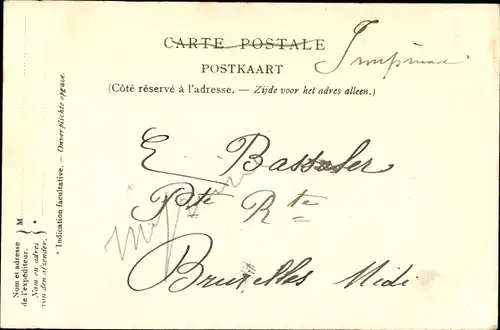 CARTE POSTALE
Imprimé
POSTKAART
(Côté réservé à l'adresse. — Zijde voor het adres alleen.)
E
Pte Rte
Bruxelles Midi
* Indication facultative. — Onverplichte opgave.
M
Nom et adresse
de l'expéditeur.
*
Naam en adres
van den afzender.